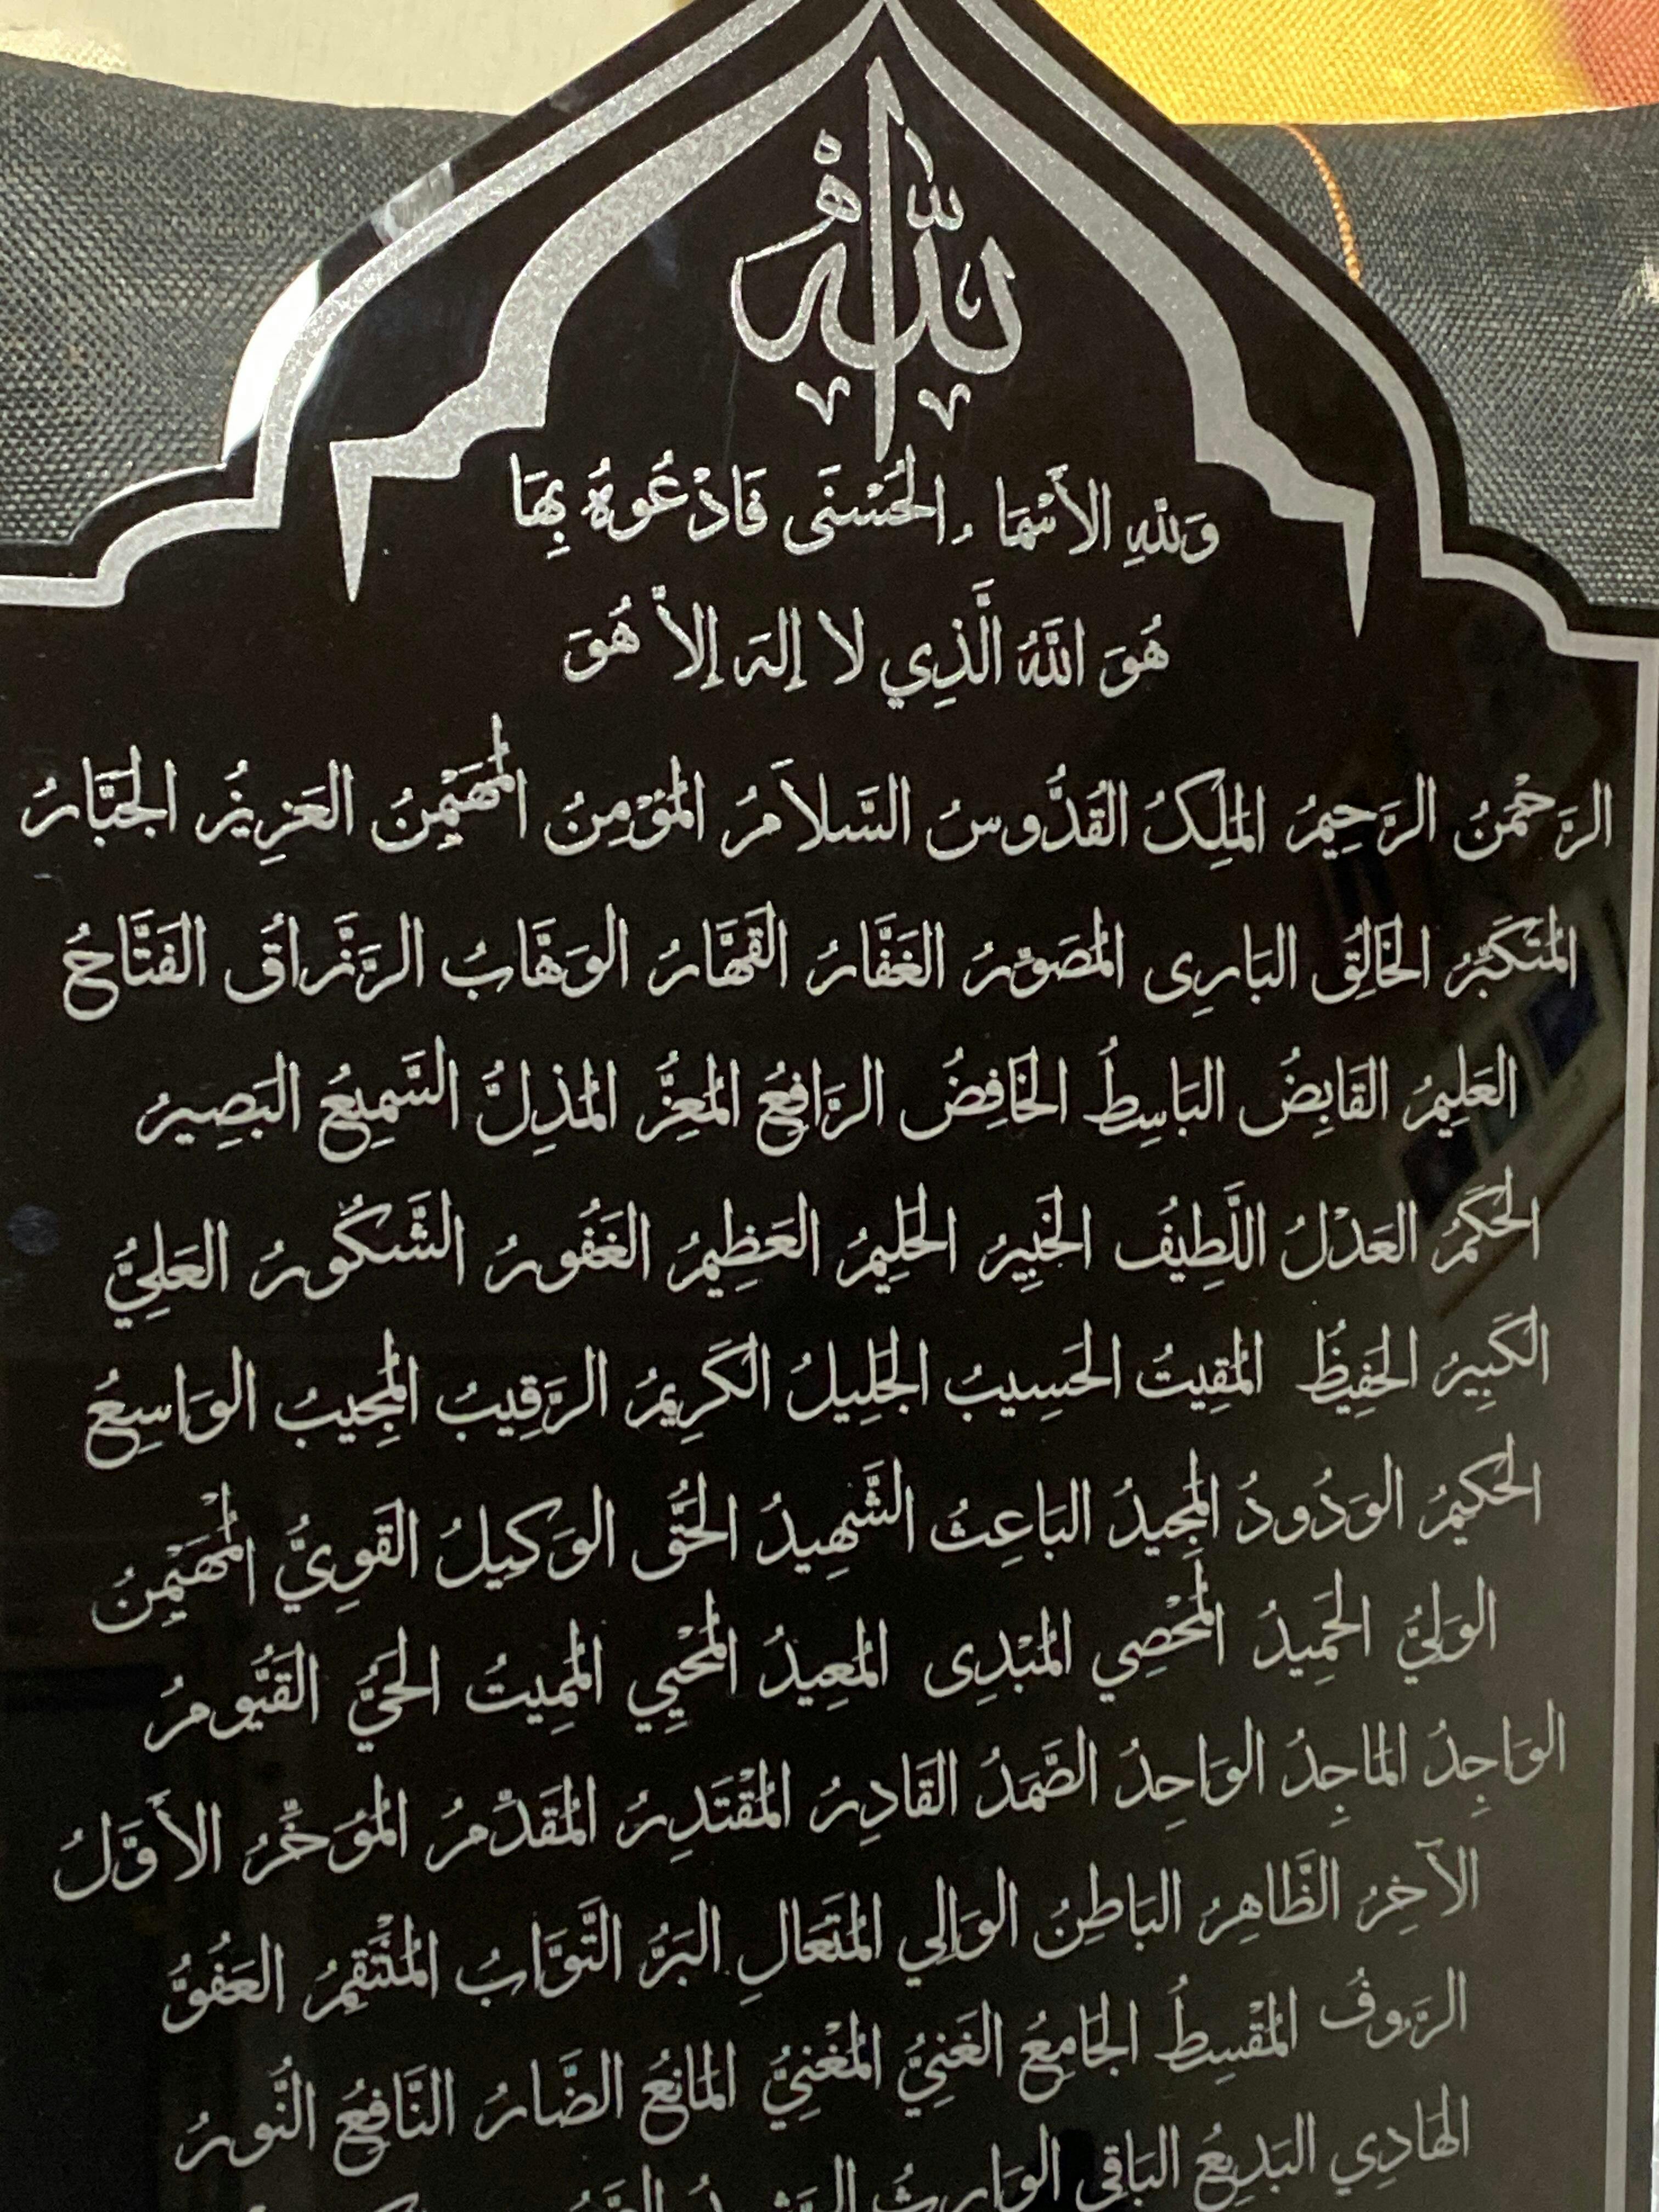 الله
وَللهِ الأَسْمَاءُ الحُسْنَى فَادْعُوهُ بِهَا
هُوَ اللهُ الَّذِي لا إِلهَ إِلاَّ هُوَ
الرَّحْمنُ الرَّحِيمُ المَلِكُ القُدُّوسُ السَّلاَمُ المُؤْمِنُ المُهَيْمِنُ العَزِيزُ الجَبَّارُ
المُتَكَبِّرُ الخَالِقُ البَارِى المُصَوِّرُ الغَفَّارُ القَهَّارُ الوَهَّابُ الرَّزَّاقُ الفَتَّاحُ
العَلِيمُ القَابِضُ البَاسِطُ الخَافِضُ الرَّافِعُ المُعِزُّ المُذِلُّ السَّمِيعُ البَصِيرُ
الحَكَمُ العَدْلُ اللَّطِيفُ الخَبِيرُ الحَلِيمُ العَظِيمُ الغَفُورُ الشَّكُورُ العَلِيُّ
الكَبِيرُ الحَفِيظُ المُقِيتُ الحَسِيبُ الجَلِيلُ الكَرِيمُ الرَّقِيبُ المُجِيبُ الوَاسِعُ
الحَكِيمُ الوَدُودُ المَجِيدُ البَاعِثُ الشَّهِيدُ الحَقُّ الوَكِيلُ القَوِيُّ المُهَيْمِنُ
الوَلِيُّ الحَمِيدُ المُحْصِي المُبْدِى المُعِيدُ المُحْيِي المُمِيتُ الحَيُّ القَيُّومُ
الوَاجِدُ المَاجِدُ الوَاحِدُ الصَّمَدُ القَادِرُ المُقْتَدِرُ المُقَدِّمُ المُؤَخِّرُ الأَوَّلُ
الآخِرُ الظَّاهِرُ البَاطِنُ الوَالِي المُتَعَالِ البَرُّ التَّوَّابُ المُنْتَقِمُ العَفُوُّ
الرَّءُوفُ المُقْسِطُ الجَامِعُ الغَنِيُّ المُغْنِيُّ المَانِعُ الضَّارُ النَّافِعُ النُّورُ
الهَادِي البَدِيعُ البَاقِي الوَارِثُ